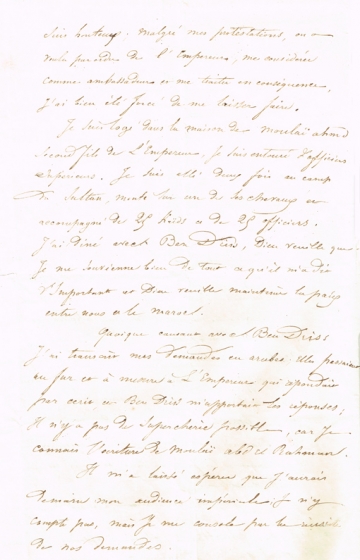 suis honteux. malgré mes protestations, on a
voulu par ordre de l'Empereur, me considérer
comme ambassadeur et me traiter en conséquence.
J'ai bien été forcé de me laisser faire.
Je suis logé dans la maison de
second fils de L'Empereur, Je suis entouré d'officiers
supérieurs. Je suis allé deux fois au camp
du Sultan, monté sur un de ses chevaux et
accompagné de 25 Kaïds et de 25 officiers.
J'ai diné avec Ben Driss, Dieu veuille que
Je me souvienne bien de tout ce qu'il m'a dit
d'important et Dieu veuille maintenir la paix
entre nous et le maroc.
Quoique causant avec Ben Driss
J'ai transcrit mes demandes en arabe.
au fur et à mesure à L'Empereur qui répondait
par écrit et Ben Driss m'apportait les réponses;
Il n'y a pas de supercherie possible, car Je
connais l'écriture de Moulaï abd el Rahaman.
Il m'a laissé espérer que J'aurais
demain mon audience impériale. J n'y
compte pas, mais Je me console par la réussite
de nos demandes.